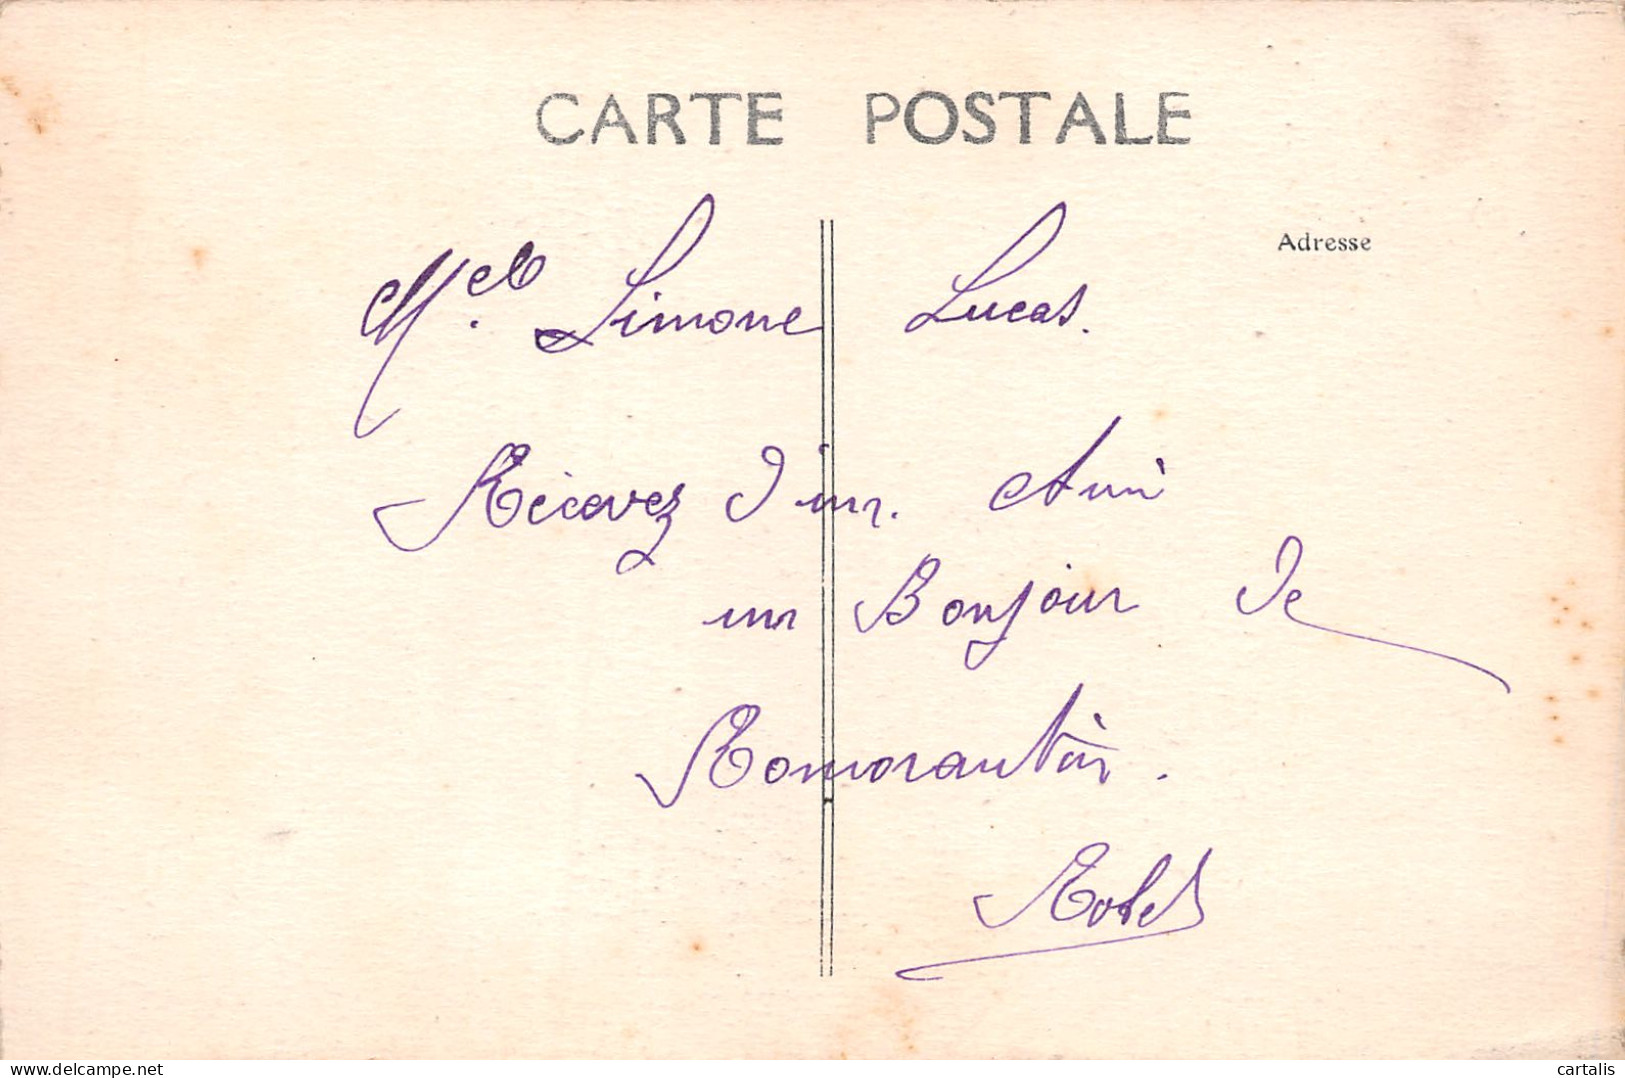 CARTE POSTALE
Adresse
Mel. Simone Lucas.
Récevez d'un. Ami
un Bonjour de
Romorantin.
delcampe.net
cartalis